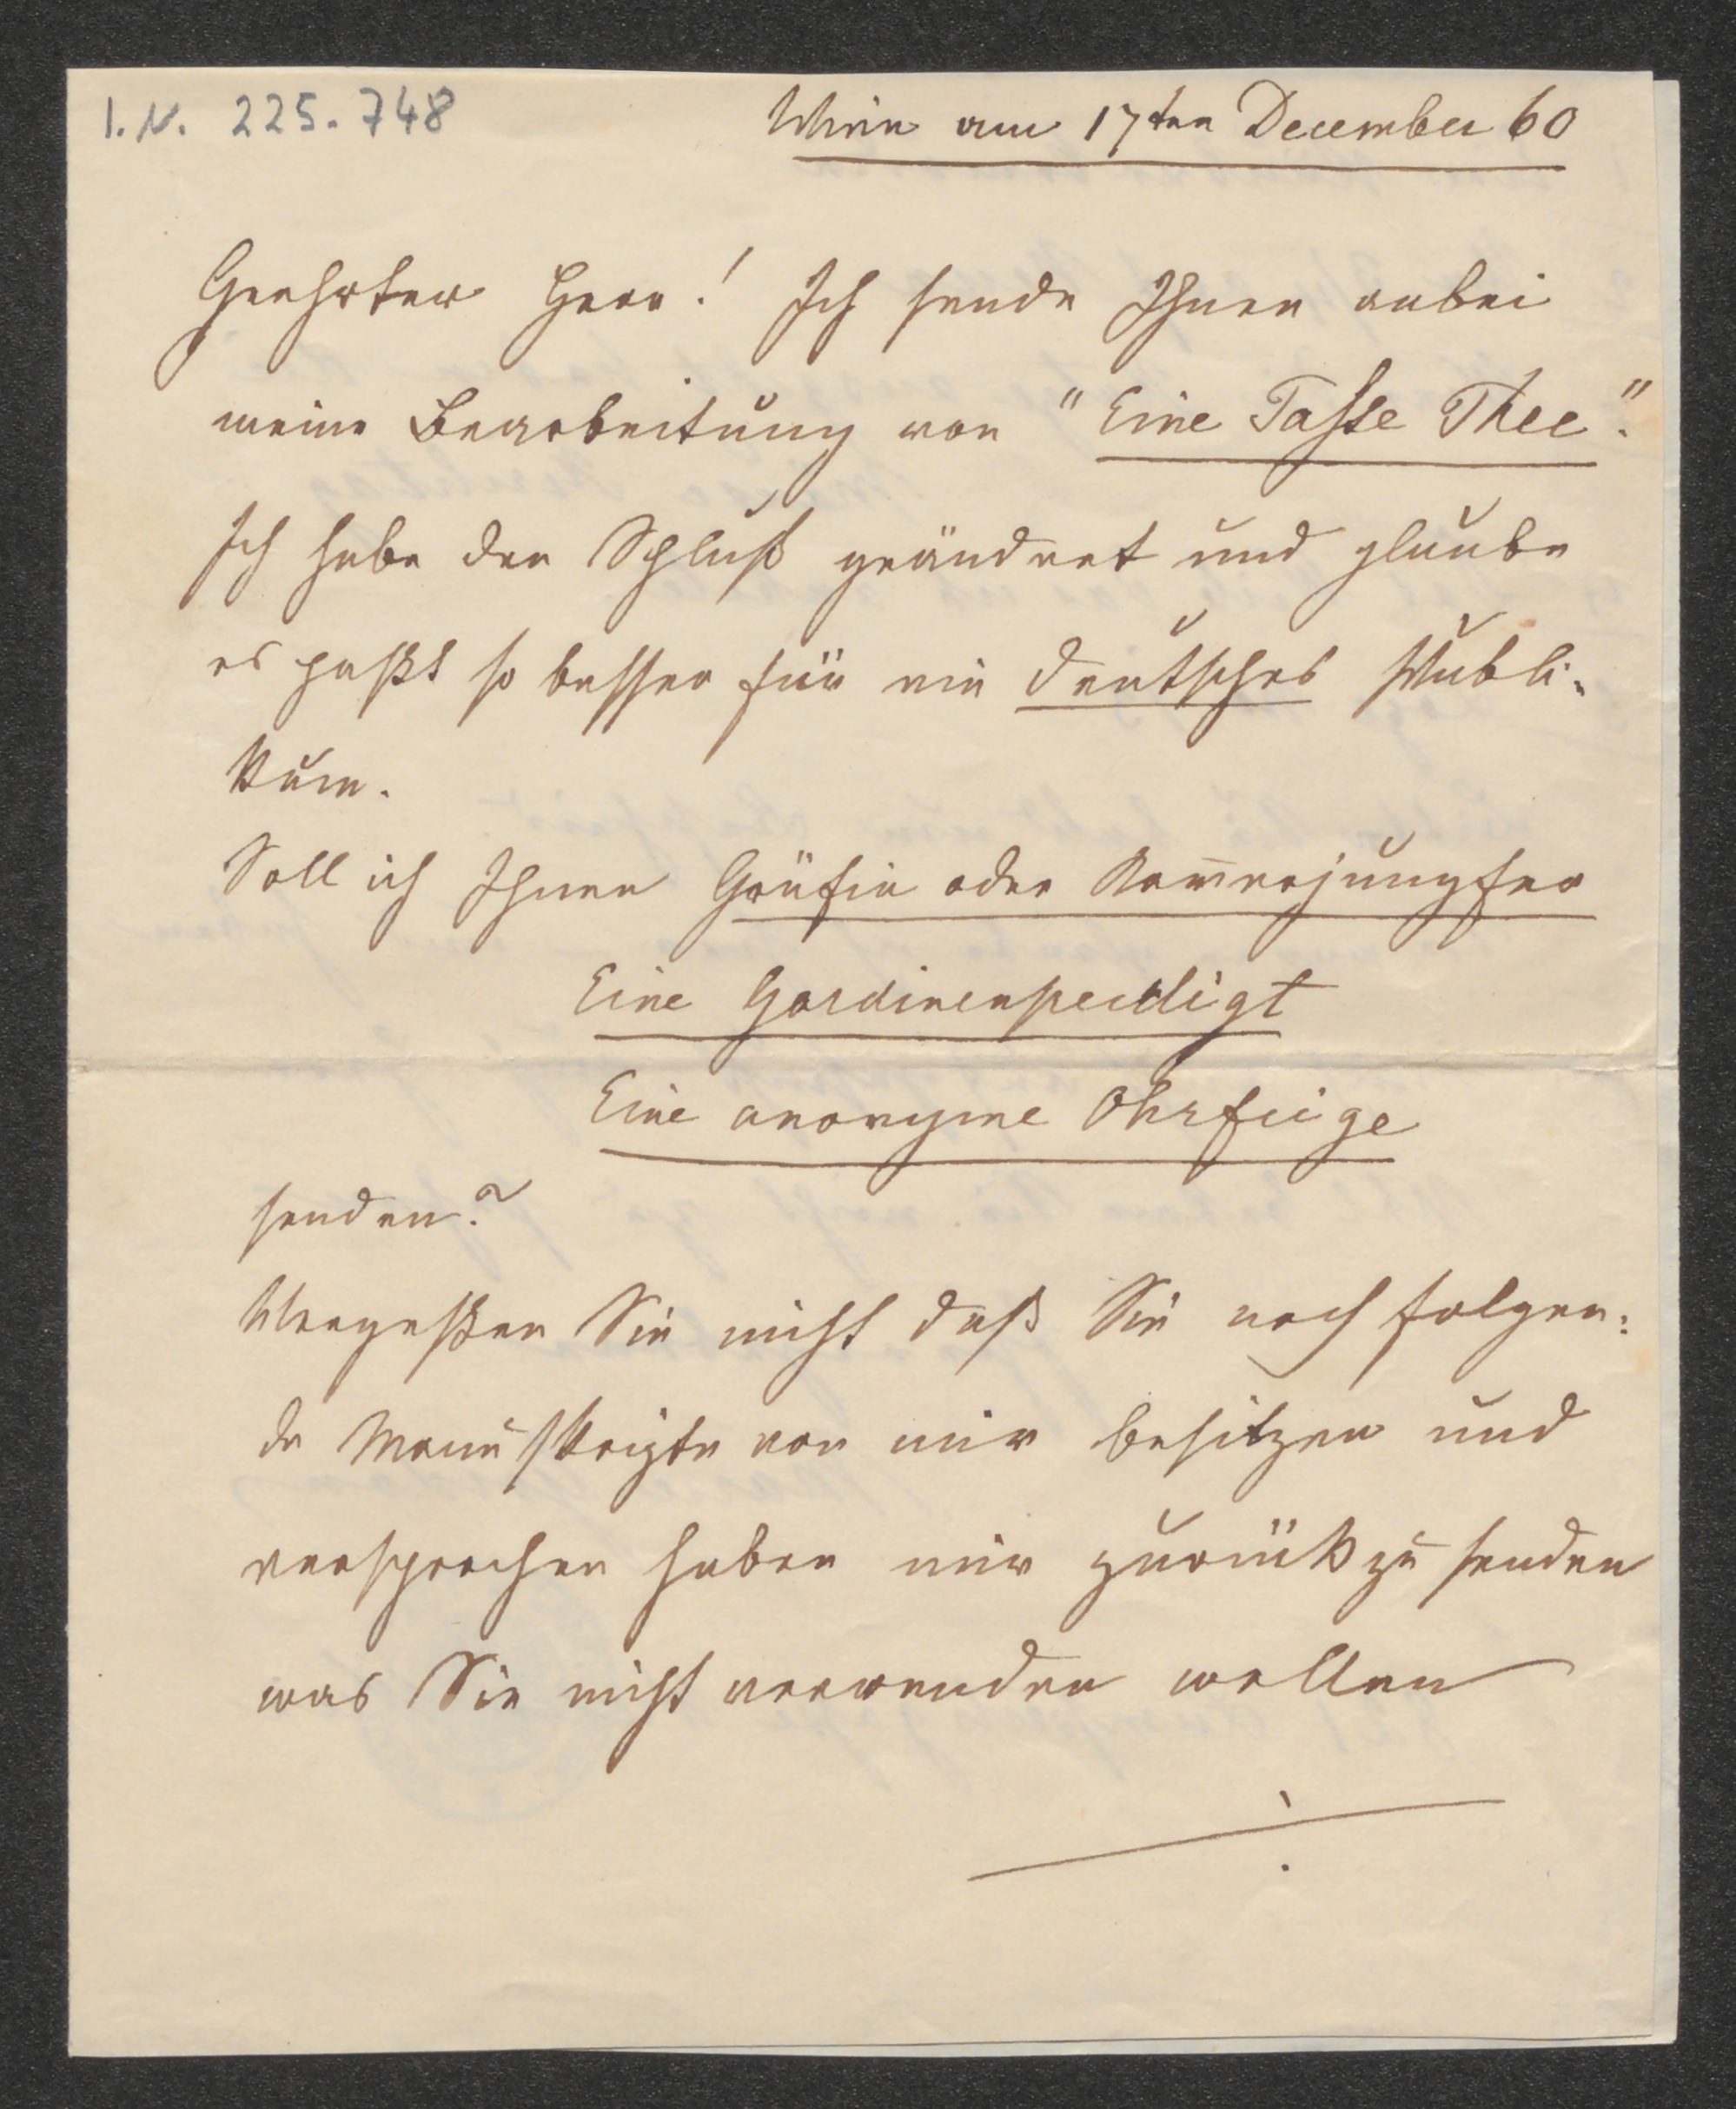 I. N. 225.748
Wien am 17ten December 60
Geehrter Herr! Ich sende Ihnen anbei
meine Bearbeitung von "Eine Tasse Thee".
Ich habe den Schluß geändert und glaube
es paßt so besser für ein deutsches Publi-
kum.
Soll ich Ihnen Gräfin oder Kam̅erjungfer
Eine Gardinenpredigt
Eine anonyme Ohrfeige
senden?
Vergeßen Sie nicht daß Sie noch folgen:
de Manuskripte von mir besitzen und
versprochen haben mir zurück zu senden
was Sie nicht verwenden wollen